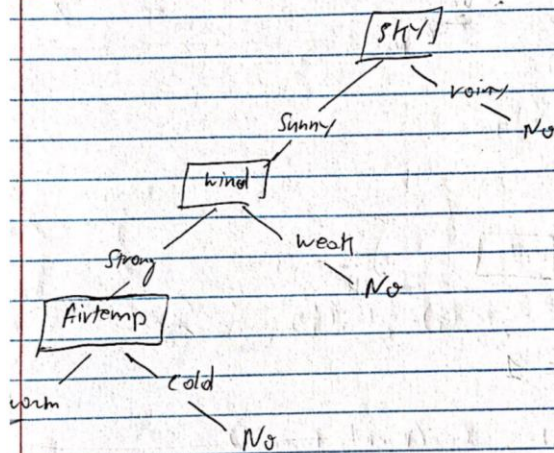 SKY
Sunny
rainy
No
Wind
Strong
Weak
No
Airtemp
warm
Cold
No